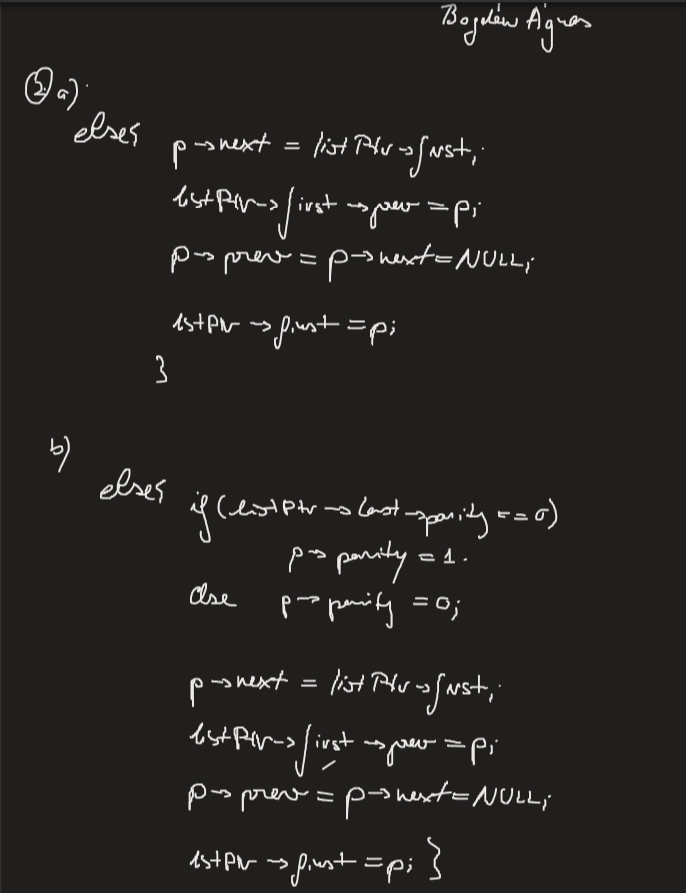 Bogdán Ágnes
2. a)
else{ p->next = listPtr->first;
listPtr->first->prev = p;
p->prev = p->next = NULL;
listPtr->first = p;
}
b)
else{ if (listPtr->last->parity == 0)
p->parity = 1.
else p->parity = 0;
p->next = listPtr->first;
listPtr->first->prev = p;
p->prev = p->next = NULL;
listPtr->first = p; }